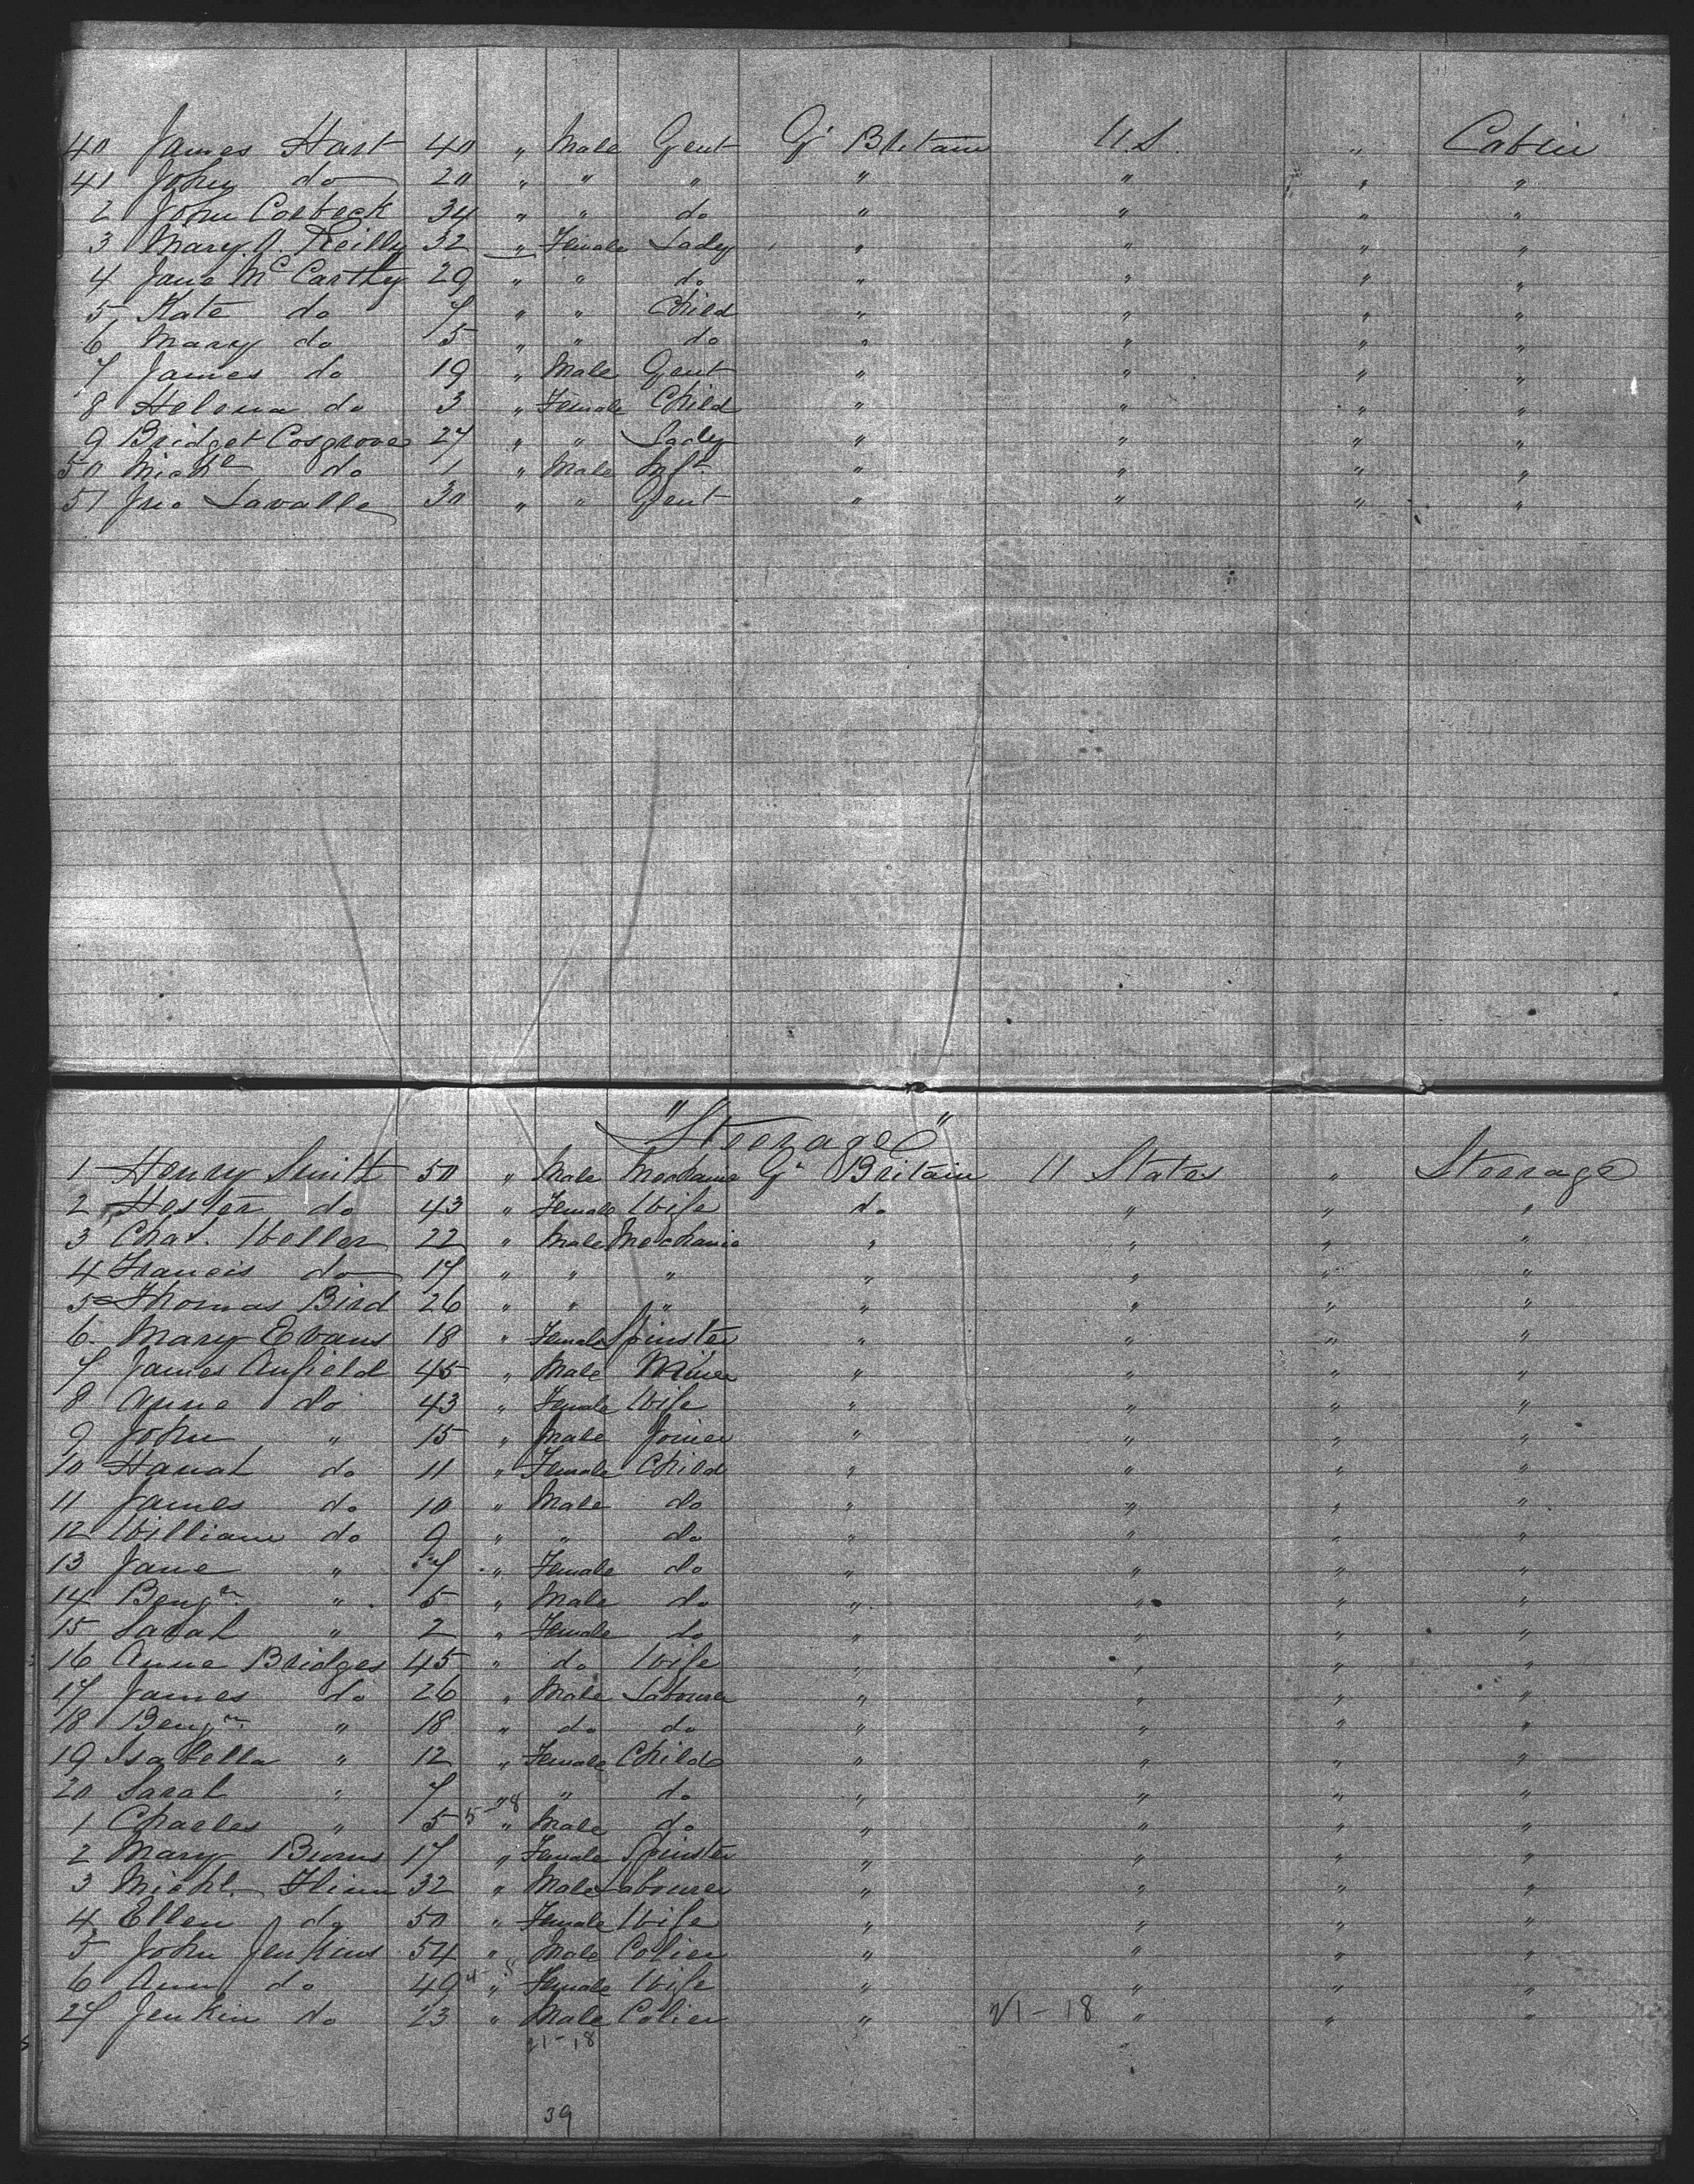 40 James Hart 40 " Male Gent Gt Britain U.S. " Cabin
41 John do 20 " " " " " " "
2 John Coebeck 34 " " do " " " "
3 Mary A. Reilly 32 " Female Lady " " " "
4 Jane McCarthy 29 " " do " " " "
5 Kate do 7 " " Child " " " "
6 Mary do 5 " " do " " " "
7 James do 19 " Male Gent " " " "
8 Helena do 3 " Female Child " " " "
9 Bridget Cosgrove 27 " " Lady " " " "
50 Michl do 1 " Male Inft " " " "
51 Jno Lavalle 30 " " Gent " " " "
"Steerage"
1 Henry Smith 50 " Male Mechanic Gt Britain U States " Steerage
2 Hester do 43 " Female Wife do " " "
3 Chas. Weller 22 " Male Mechanic " " " "
4 Francis do 17 " " " " " " "
5 Thomas Bird 26 " " " " " " "
6. Mary Evans 18 " Female Spinster " " " "
7 James Anfield 45 " Male Miner " " " "
8 Anne do 43 " Female Wife " " " "
9 John " 15 " Male Joiner " " " "
10 Hanah do 11 " Female Child " " " "
11 James do 10 " Male do " " " "
12 William do 9 " " do " " " "
13 Jane " 7 " Female do " " " "
14 Benjn. " 5 " Male do " " " "
15 Sarah " 2 " Female do " " " "
16 Anne Bridges 45 " do Wife " " " "
17 James do 26 " Male Labourer " " " "
18 Benjn. " 18 " do do " " " "
19 Isabella " 12 " Female Child " " " "
20 Sarah " 7 " " do " " " "
1 Charles " 5 5-8 " Male do " " " "
2 Mary Burns 17 " Female Spinster " " " "
3 Michl. Flinn 32 " Male Labourer " " " "
4 Ellen do 50 " Female Wife " " " "
5 John Jenkins 54 " Male Colier " " " "
6 Ann do 49 " Female Wife " " " "
27 Jenkin do 23 " Male Colier " 21-18 " " "
21-18
39